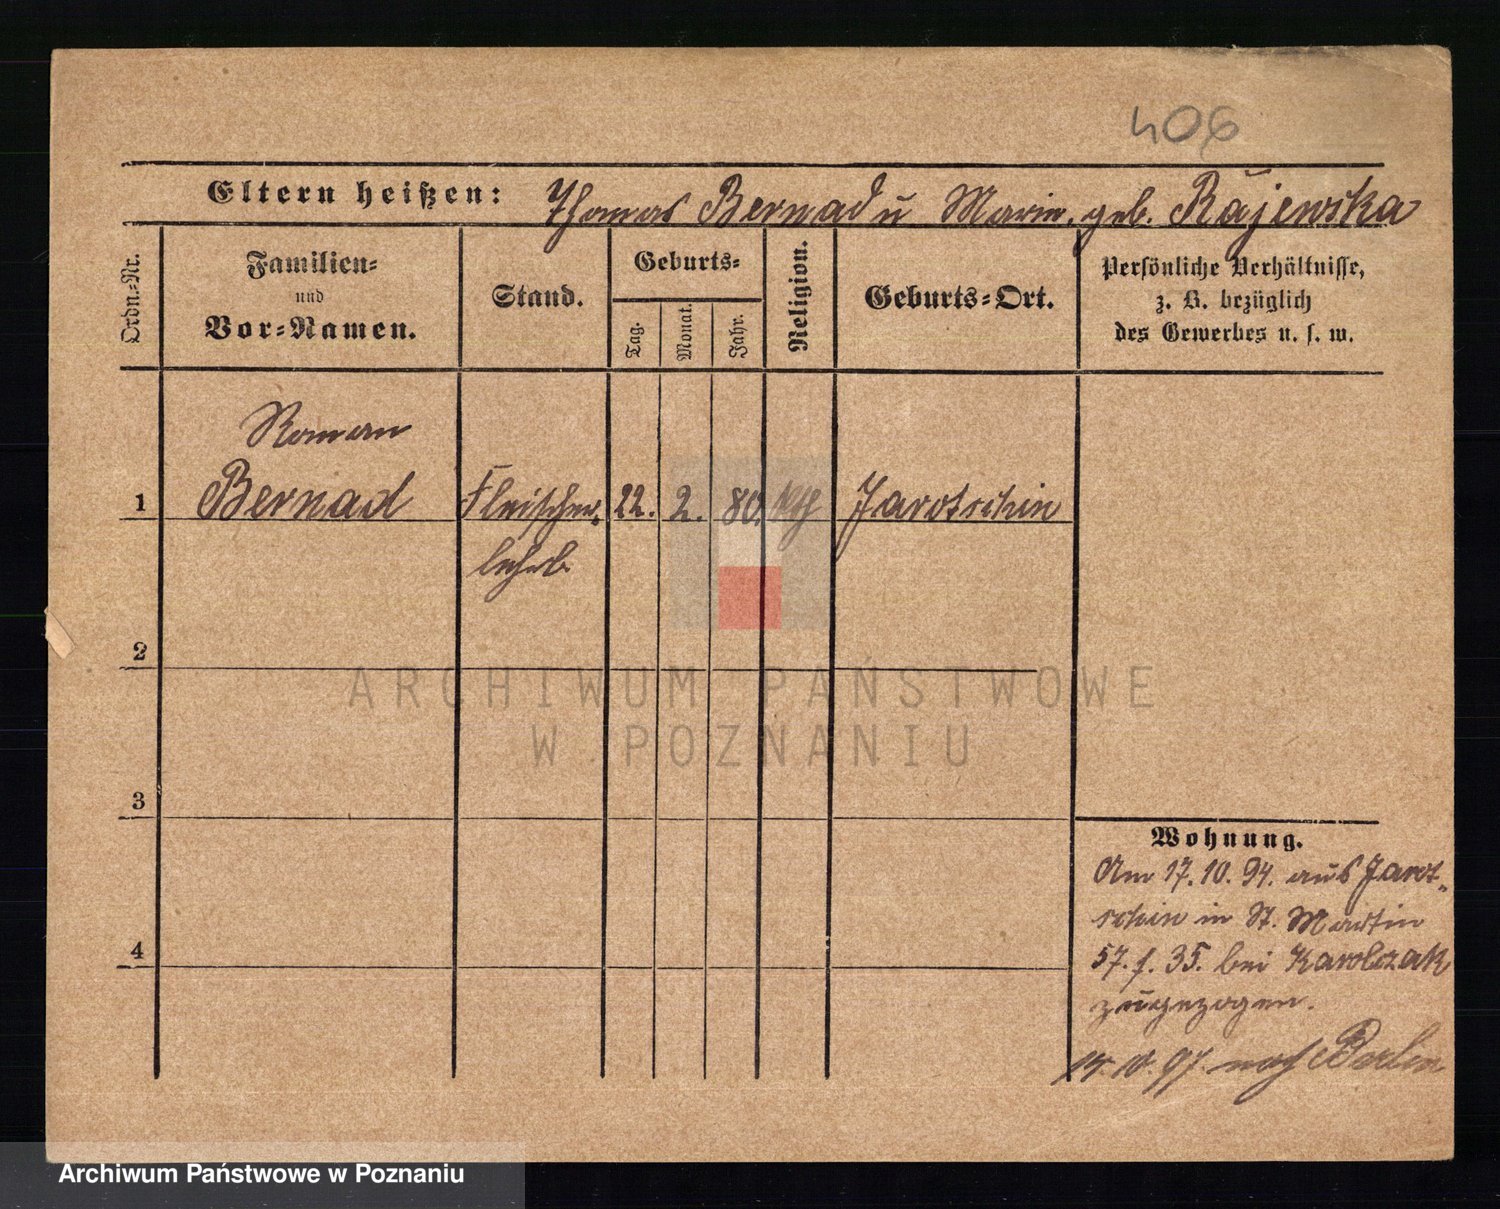 406
Eltern heißen: Thomas Bernad u Marie, geb. Rajewska
Ordn.-Nr.
Familien-
und
Vor-Namen.
Stand.
Geburts-
Tag.
Monat.
Jahr.
Religion.
Geburts-Ort.
Persönliche Verhältnisse,
z. B. bezüglich
des Gewerbes u. s. w.
Roman
1 Bernad Fleischer- 22. 2. 80. kth Jarotschin
lehrl.
2
3
4
Wohnung.
Am 17.10.94. aus Jarot-
schin in St. Martin
57. f. 35. bei Karolczak
zugezogen.
10. 97 nach Berlin
ARCHIWUM PAŃSTWOWE
W POZNANIU
Archiwum Państwowe w Poznaniu